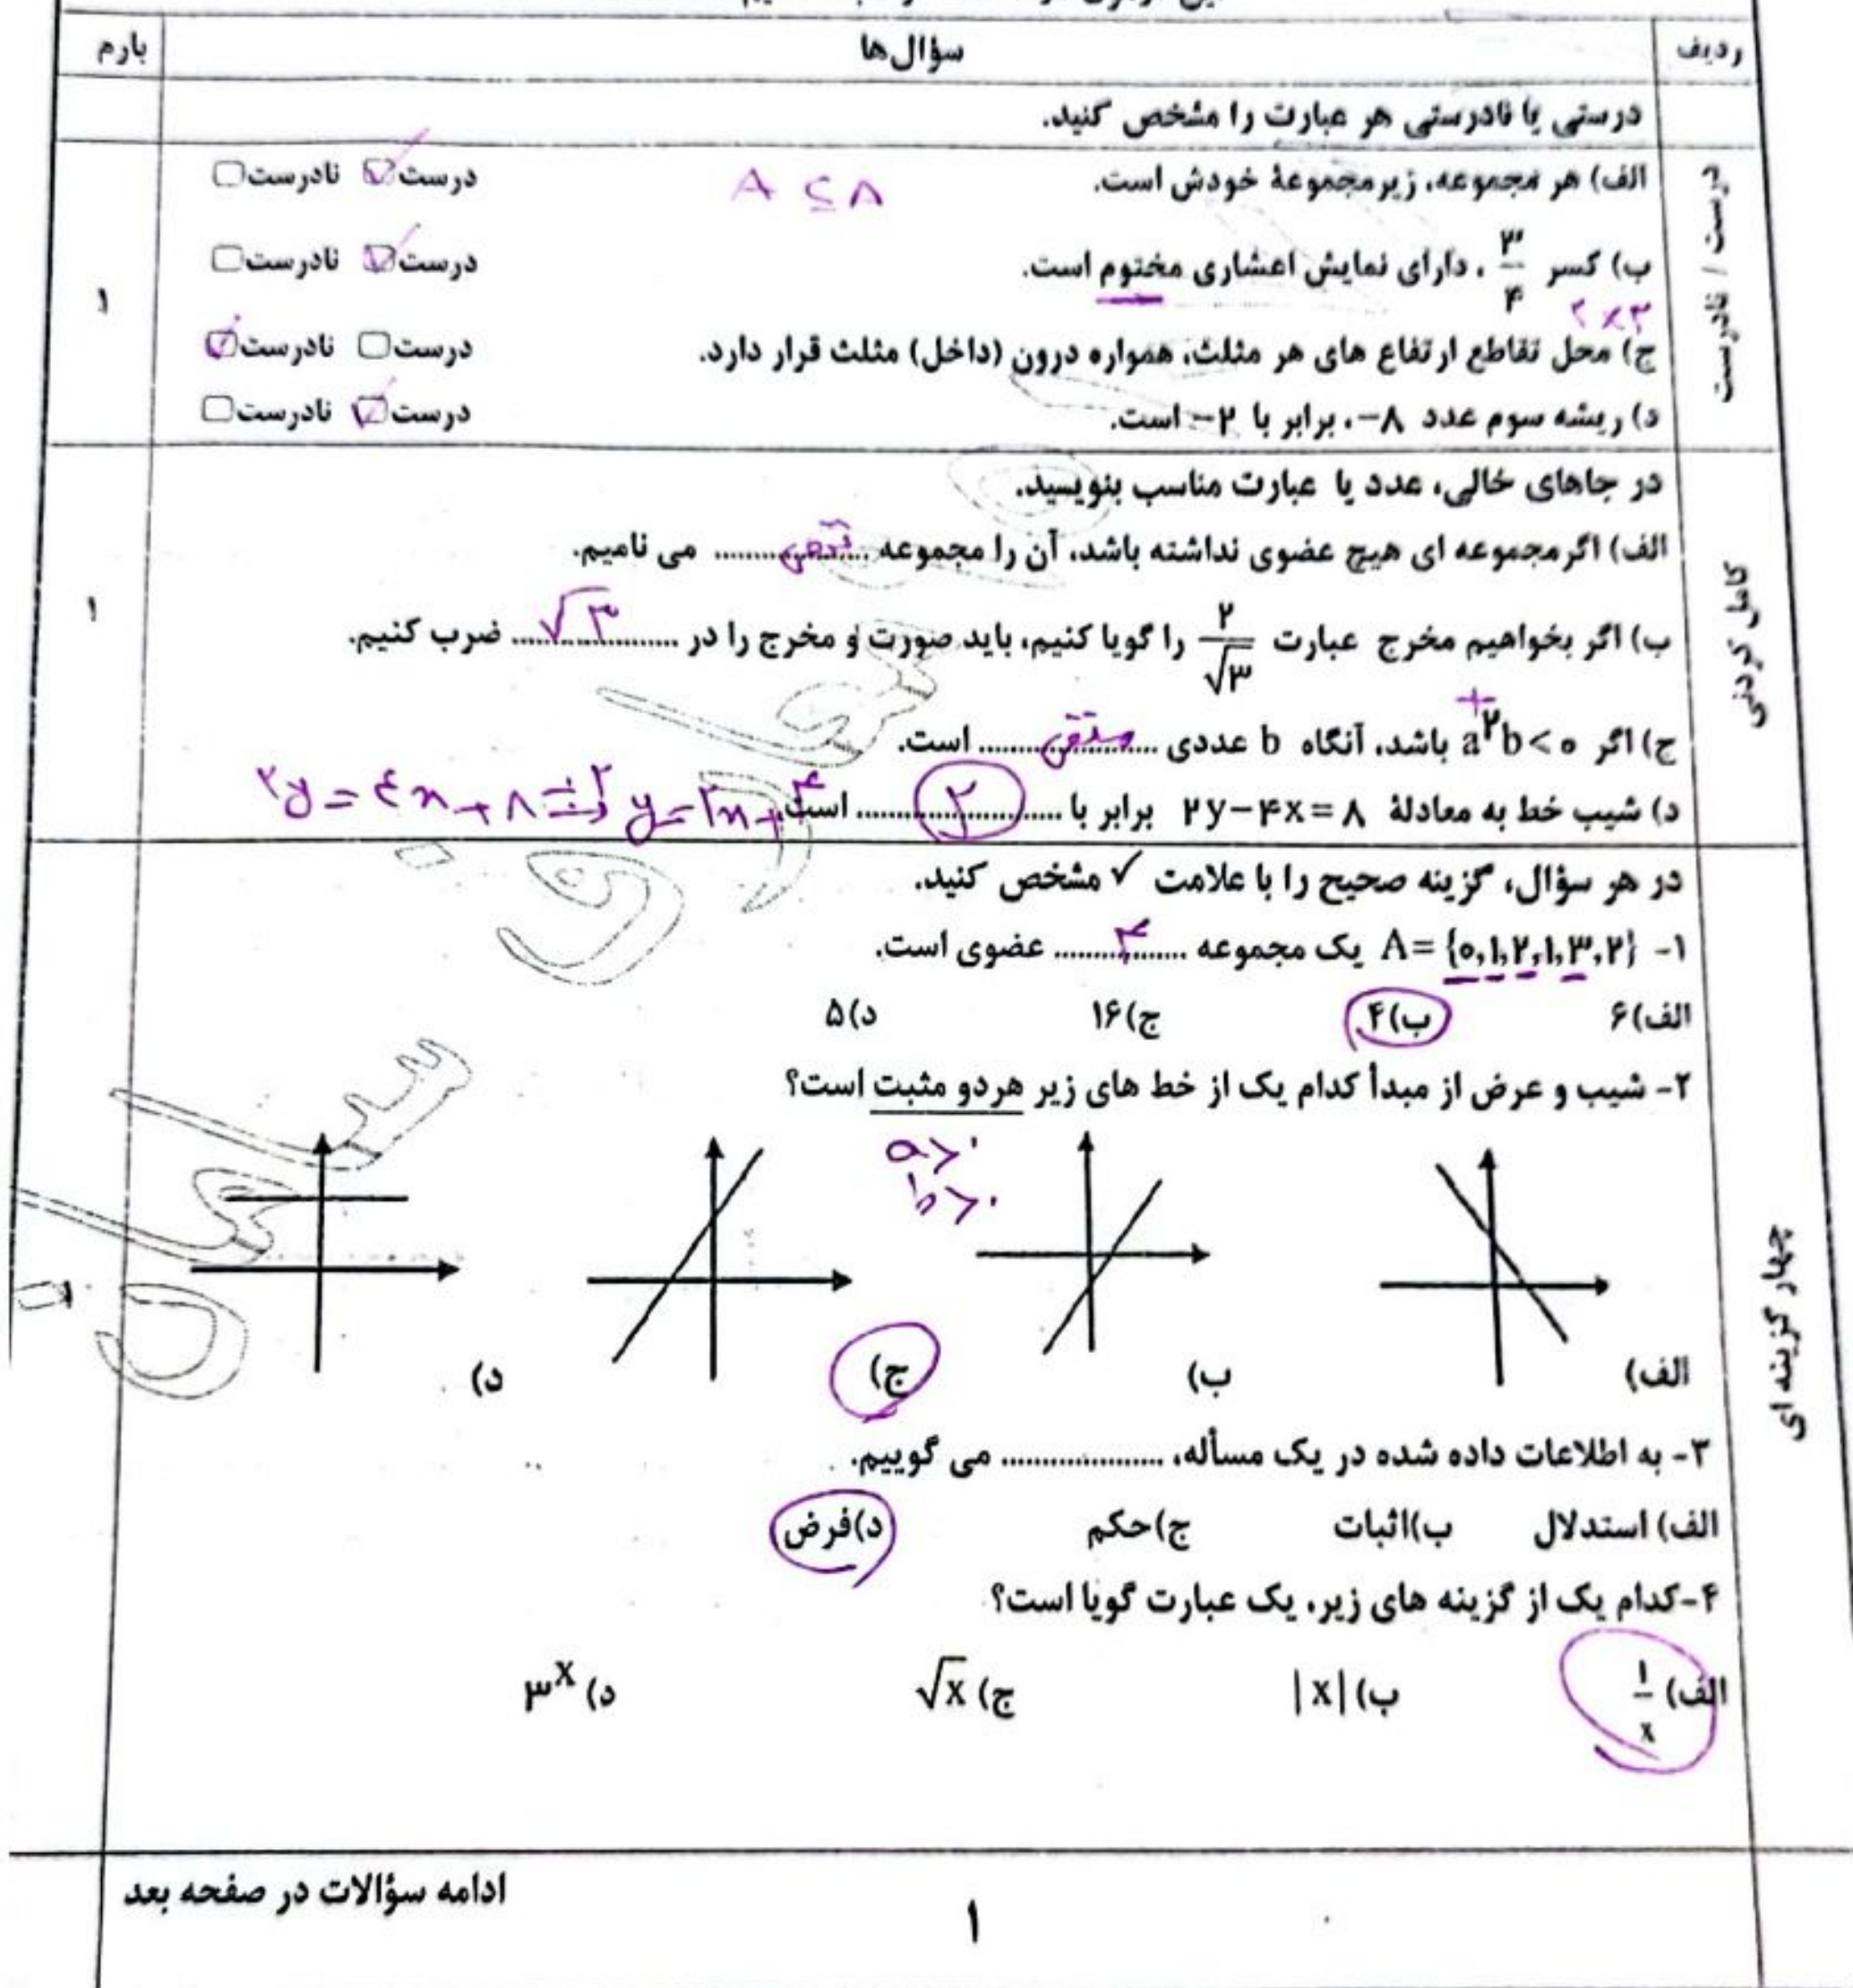 ردیف سؤال‌ها بارم
درستی یا نادرستی هر عبارت را مشخص کنید.
درست / نادرست
الف) هر مجموعه، زیرمجموعهٔ خودش است. A ⊆ A درست☑ نادرست☐
ب) کسر ۳/۴ ، دارای نمایش اعشاری مختوم است. درست☑ نادرست☐
۲×۲
۱
ج) محل تقاطع ارتفاع های هر مثلث، همواره درون (داخل) مثلث قرار دارد. درست☐ نادرست☑
د) ریشه سوم عدد ۸−، برابر با ۲− است. درست☑ نادرست☐
کامل کردنی
در جاهای خالی، عدد یا عبارت مناسب بنویسید.
الف) اگر مجموعه ای هیچ عضوی نداشته باشد، آن را مجموعه ...تهی... می نامیم.
۱
ب) اگر بخواهیم مخرج عبارت ۲/√۳ را گویا کنیم، باید صورت و مخرج را در ...√۳... ضرب کنیم.
+
ج) اگر a²b<۰ باشد، آنگاه b عددی ...منفی... است.
د) شیب خط به معادلهٔ ۲y−۴x=۸ برابر با ...۲... است. ۲y=۴x+۸ ÷۲ y=۲x+۴
چهار گزینه ای
در هر سؤال، گزینه صحیح را با علامت ✓ مشخص کنید.
۱- A={۰,۱,۲,۱,۳,۲} یک مجموعه ...۴... عضوی است.
الف)۶ ب)۴ ج)۱۶ د)۵
۲- شیب و عرض از مبدأ کدام یک از خط های زیر هردو مثبت است؟
a>۰
b>۰
الف) ب) ج) د)
۳- به اطلاعات داده شده در یک مسأله، ................... می گوییم.
الف) استدلال ب)اثبات ج)حکم د)فرض
۴-کدام یک از گزینه های زیر، یک عبارت گویا است؟
الف) ۱/x ب) |x| ج) √x د) ۳ˣ
ادامه سؤالات در صفحه بعد
۱